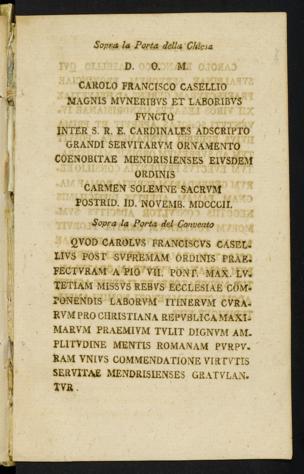 Sopra la Porta della Chiesa
D. O. M.
CAROLO FRANCISCO CASELLIO
MAGNIS MVNERIBVS ET LABORIBVS
FVNCTO
INTER S. R. E. CARDINALES ADSCRIPTO
GRANDI SERVITARVM ORNAMENTO
COENOBITAE MENDRISIENSES EIVSDEM
ORDINIS
CARMEN SOLEMNE SACRVM
POSTRID. ID. NOVEMB. MDCCCII.
Sopra la Porta del Convento
QVOD CAROLVS FRANCISCVS CASEL-
LIVS POST SVPREMAM ORDINIS PRAE-
FECTVRAM A PIO VII. PONT. MAX. LV-
TETIAM MISSVS REBVS ECCLESIAE COM-
PONENDIS LABORVM ITINERVM CVRA-
RVM PRO CHRISTIANA REPVBLICA MAXI-
MARVM PRAEMIVM TVLIT DIGNVM AM-
PLITVDINE MENTIS ROMANAM PVRPV-
RAM VNIVS COMMENDATIONE VIRTVTIS
SERVITAE MENDRISIENSES GRATVLAN-
TVR.